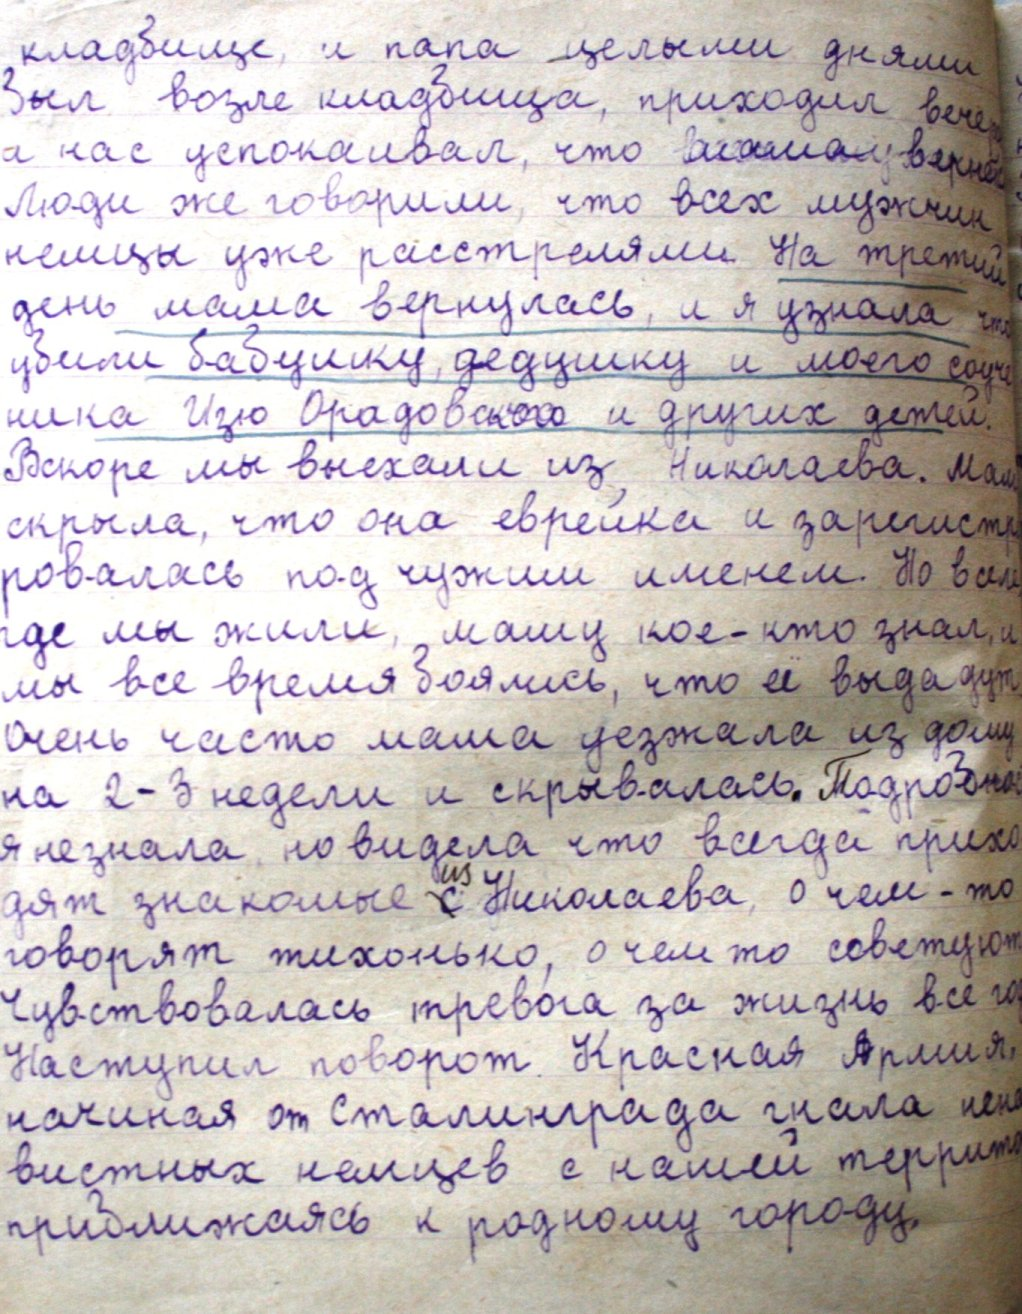 кладбище, и папа целыми днями
был возле кладбища, приходил вечер
и нас успокаивал, что вернётся
Люди же говорили, что всех мужчин
немцы уже расстреляли. На третий
день мама вернулась, и я узнала что
убили бабушку, дедушку и моего соуче
ника Изю Орадовского и других детей.
Вскоре мы выехали из Николаева. Мама
скрыла, что она еврейка и зарегистри
ровалась под чужим именем. Но в селе
где мы жили, маму кое-кто знал, и
мы все время боялись, что её выдадут
Очень часто мама уезжала из дому
на 2-3 недели и скрывалась. Подробно
я незнала, но видела что всегда прихо
дят знакомые из Николаева, о чем-то
говорят тихонько, о чем то советуют
Чувствовалась тревога за жизнь все
Наступил поворот. Красная Армия,
начиная от Сталинграда гнала нена
вистных немцев с нашей террито
приближаясь к родному городу.